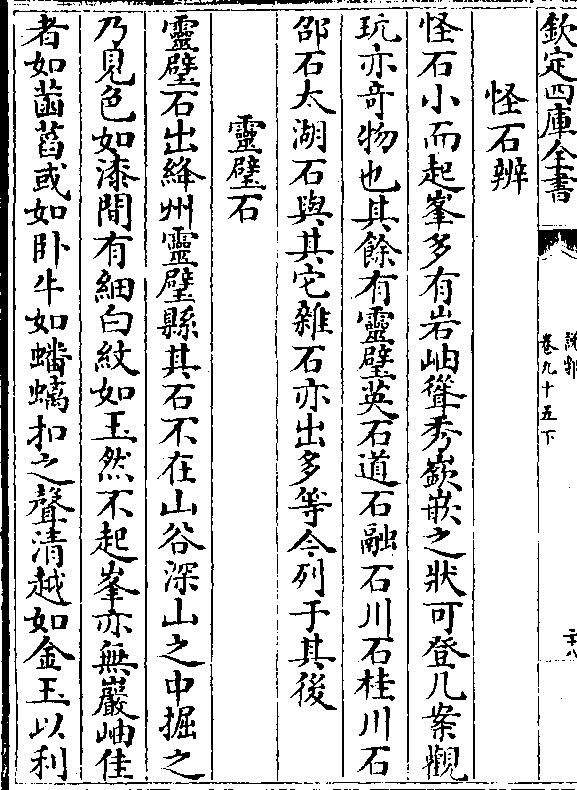 欽定四庫全書
説郛
卷九十五下
二十八
怪石辨
怪石小而起峯多有岩岫聳秀嶔嵌之狀可登几案觀
玩亦竒物也其餘有靈璧英石道石融石川石桂川石
邵石太湖石與其它雜石亦出多等今列于其後
靈璧石
靈璧石出絳州靈璧縣其石不在山谷深山之中掘之
乃見色如漆間有細白紋如玉然不起峯亦無巖岫佳
者如菡萏或如卧牛如蟠螭扣之聲清越如金玉以利